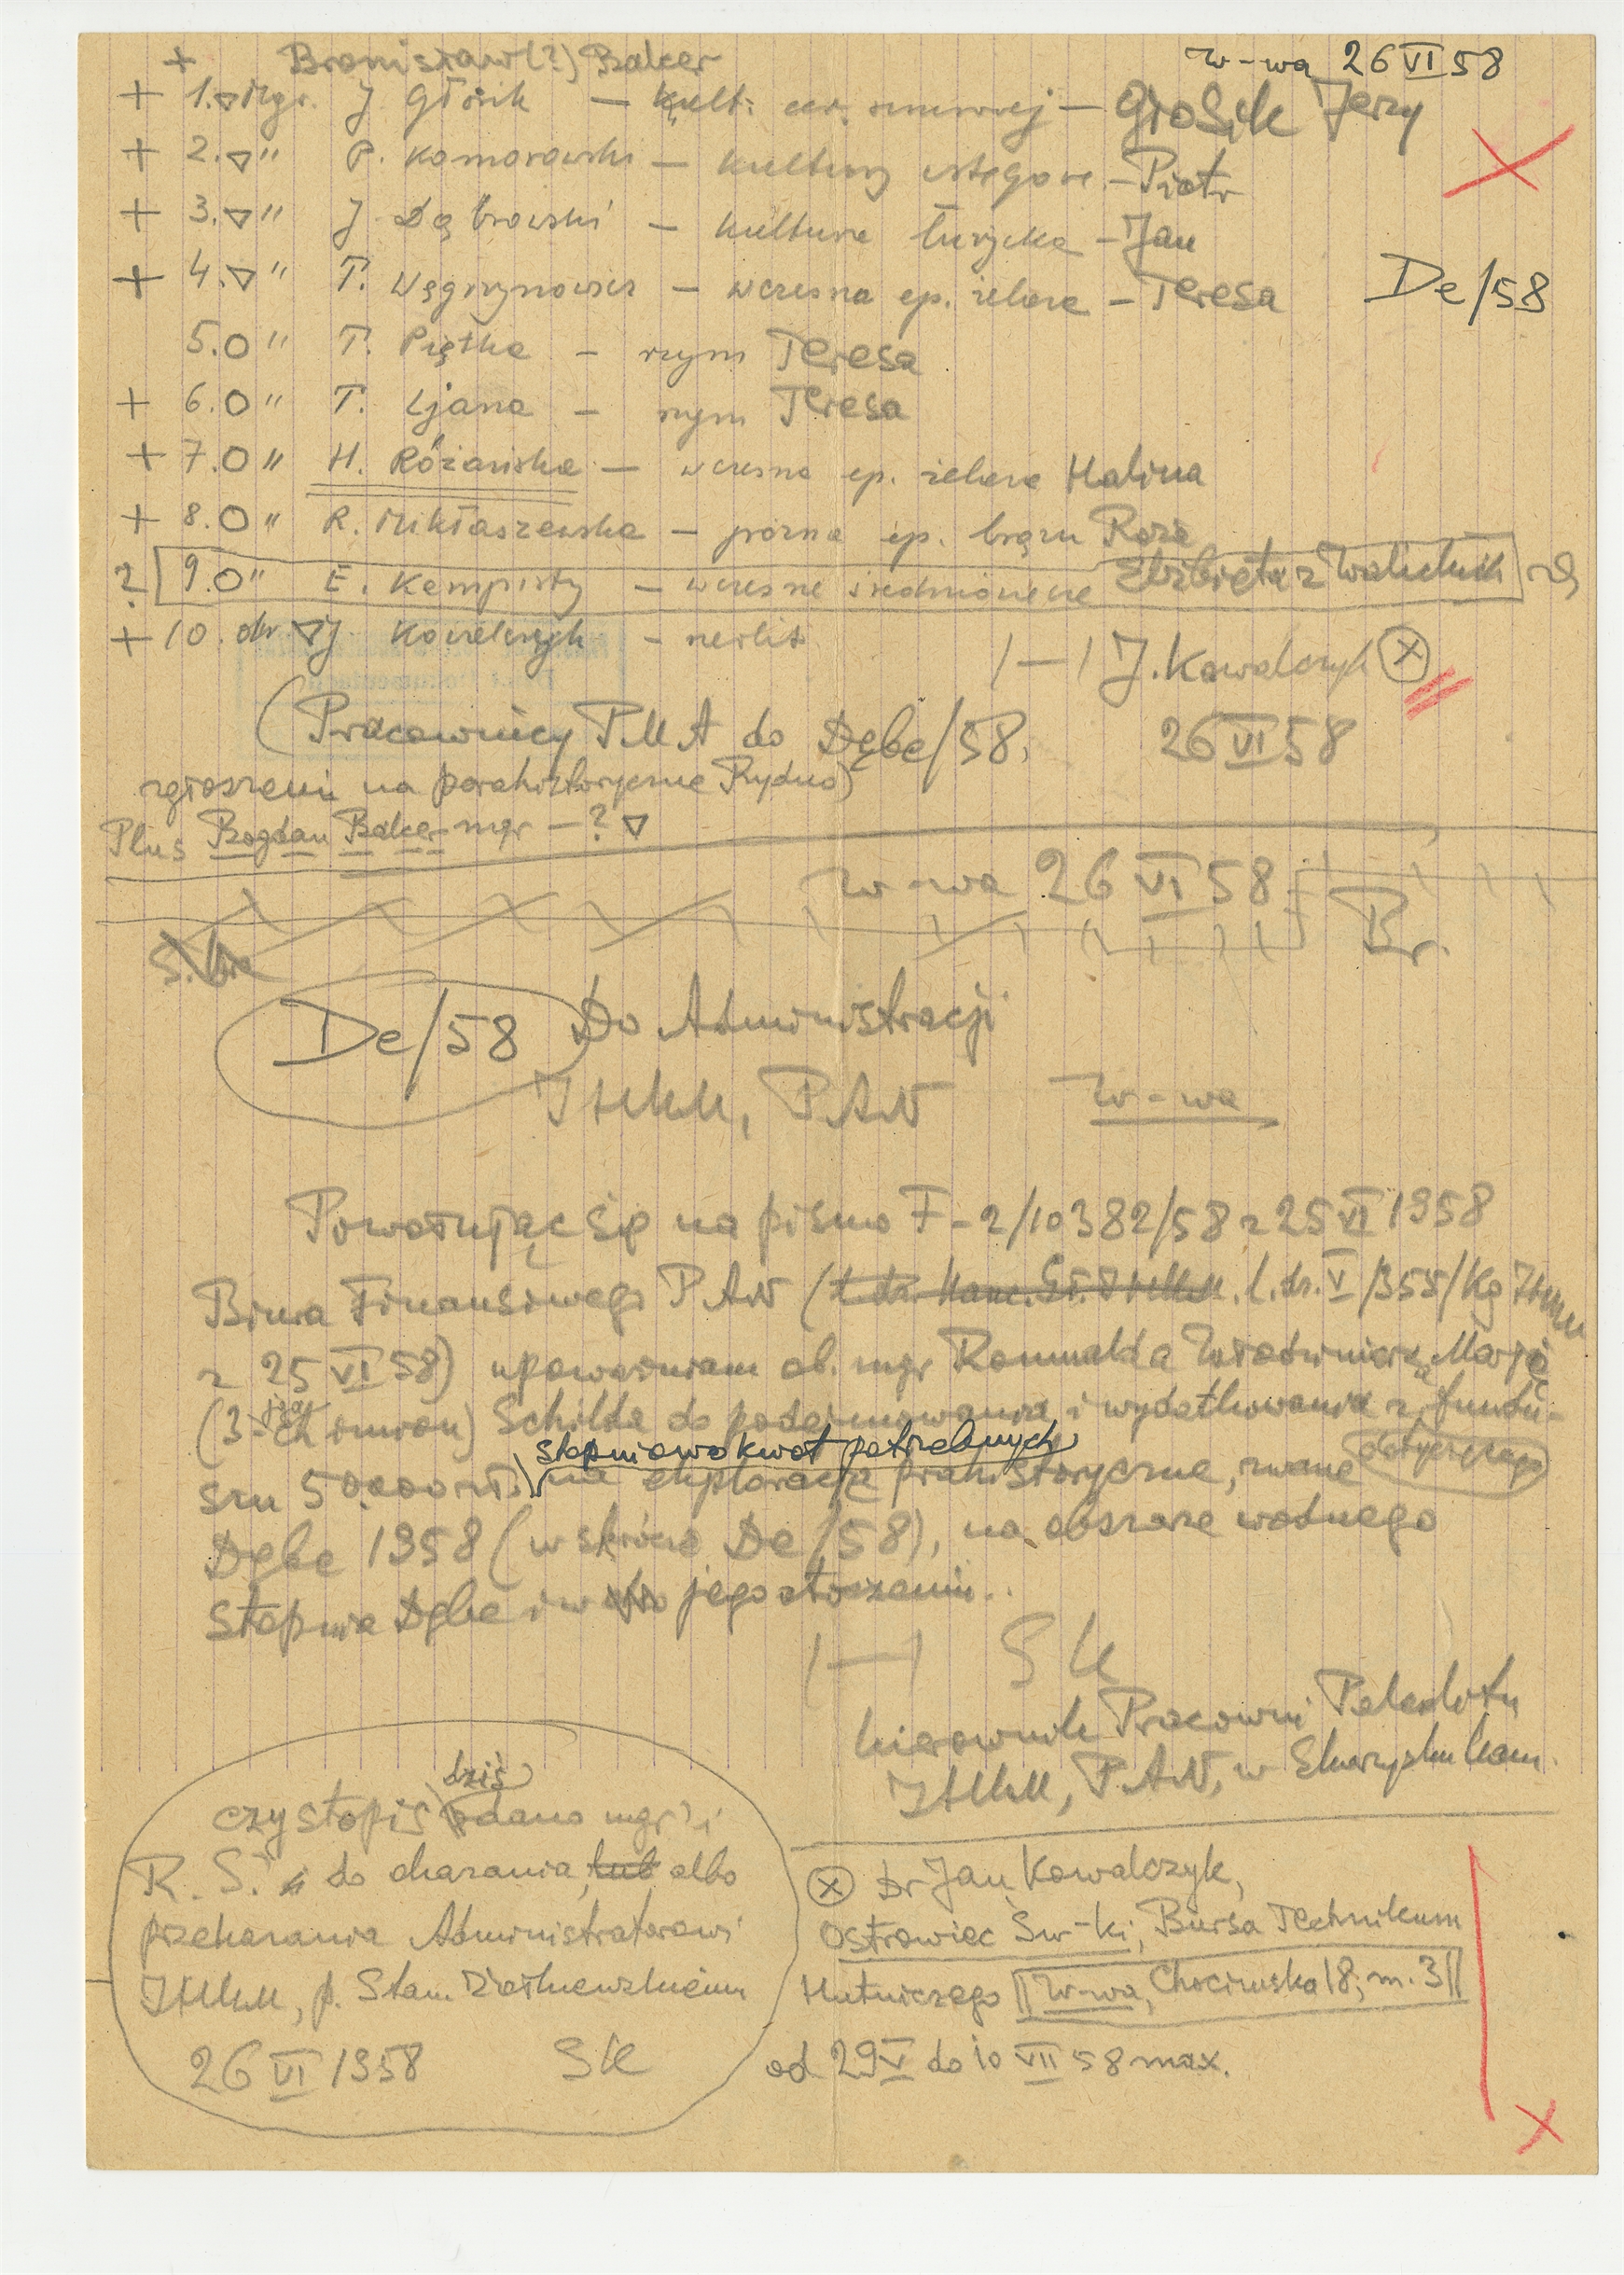 + Bronisław(?) Balcer
W-wa 26 VI 58
+ 1. ▽ mgr. J. Głosik — kult. cer. sznurowej — Głosik Jerzy
+ 2. ▽ " P. Komorowski — kultury wstęgowe — Piotr
+ 3. ▽ " J. Dąbrowski — kultura łużycka — Jan
+ 4. ▽ " T. Węgrzynowicz — wczesna ep. żelaza — Teresa
De/58
5. O " T. Piętka — rzym Teresa
+ 6. O " T. Liana — rzym Teresa
+ 7. O " H. Różańska — wczesna ep. żelaza Halina
+ 8. O " R. Mikłaszewska — późna ep. brązu Róża
? 9. O " E. Kempisty — wczesne średniowiecze Elżbieta z
+ 10. dr ▽ J. Kowalczyk — neolit
/—/ J. Kowalczyk ⊗
(Pracownicy PMA do Dębe/58,
26 VI 58
zgłoszeni na parahistoryczne Rydno)
Plus Bogdan Balcer mgr — ? ▽
W-wa 26 VI 58
Br.
De/58 Do Administracji
IHKM, PAN W-wa
Powołując się na pismo F-2/10382/58 z 25 VI 1958
Biura Finansowego PAN (l. dz. V/355/Kg IHKM
z 25 VI 58) upoważniam ob. mgr Romualda Włodzimierza Marję
(3-ga imion) Schilda do podejmowania i wydatkowania z fundu-
stopniowo kwot potrzebnych
szu 50.000 zł. na eksploracje prahistoryczne, zwane dotyczącego
Dębe 1958 (w skrócie De/58), na obszarze wodnego
Stopnia Dębe i w jego otoczeniu.
/—/ SK
kierownik Pracowni Paleolitu
IHKM, PAN, w Skarżysku Kam.
dziś
czystopis oddano mgr'i
R. S. do okazania, lub albo
przekazania Administratorowi
IHKM, p. Stan.
26 VI 1958 SK
⊗ Dr Jan Kowalczyk,
Ostrowiec Św-ki, Bursa Technikum
Hutniczego || W-wa, Chocimska 18, m. 3 ||
od 29 V do 10 VII 58 max.